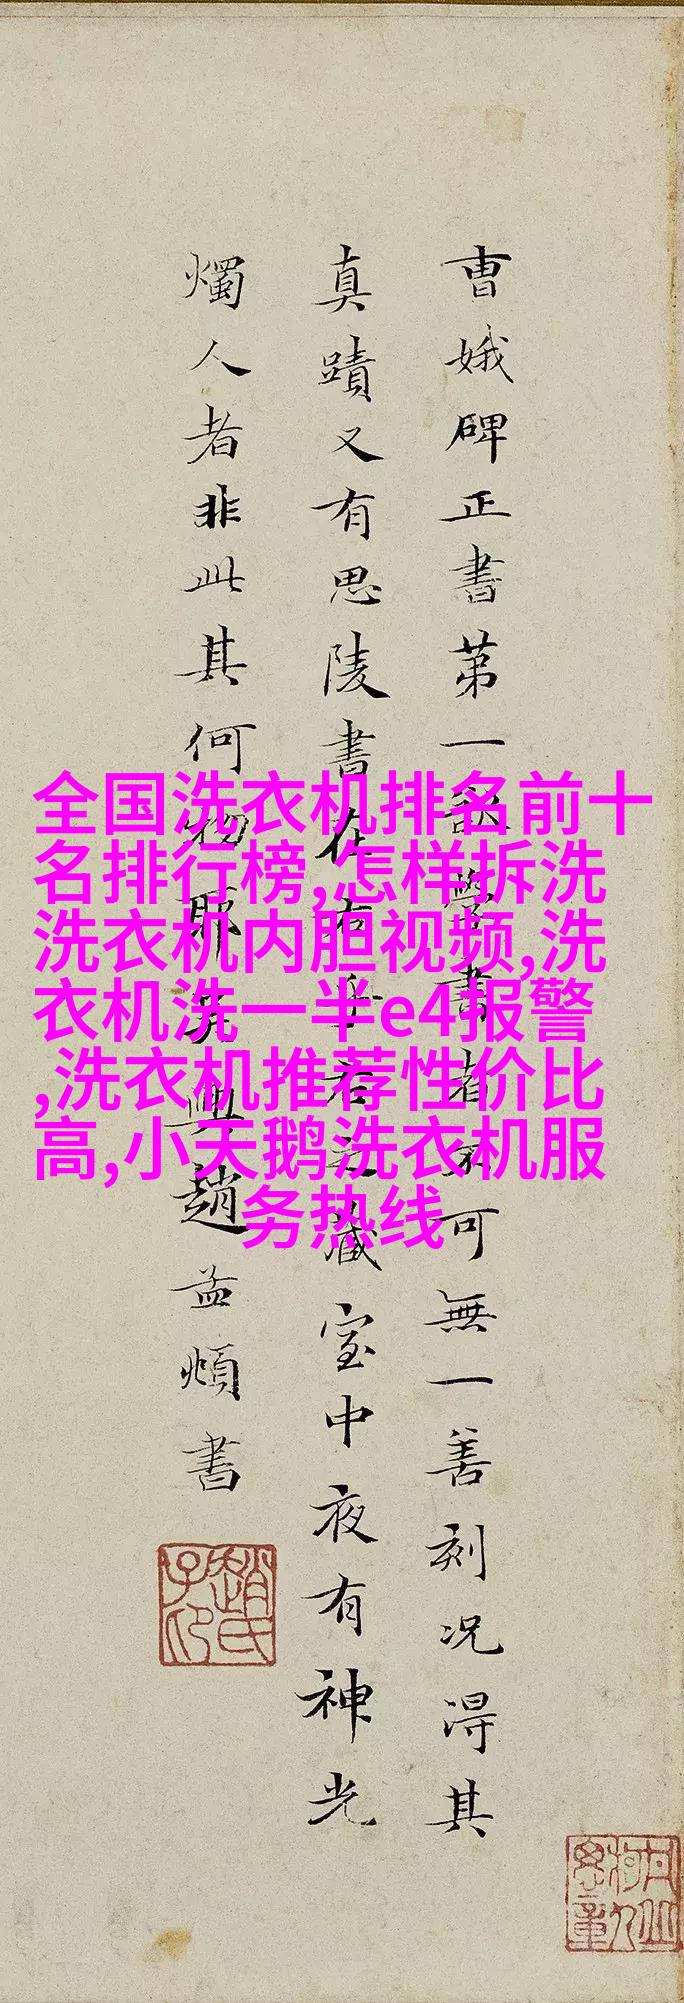 曹娥碑正書第一欲學書者不可無一善刻况淂其
真蹟又有思陵書在右乎右之藏室中夜有神光
燭人者非此其何物耶吳興趙孟頫書
全国洗衣机排名前十
名排行榜,怎样拆洗
洗衣机内胆视频,洗
衣机洗一半e4报警
,洗衣机推荐性价比
高,小天鹅洗衣机服
务热线